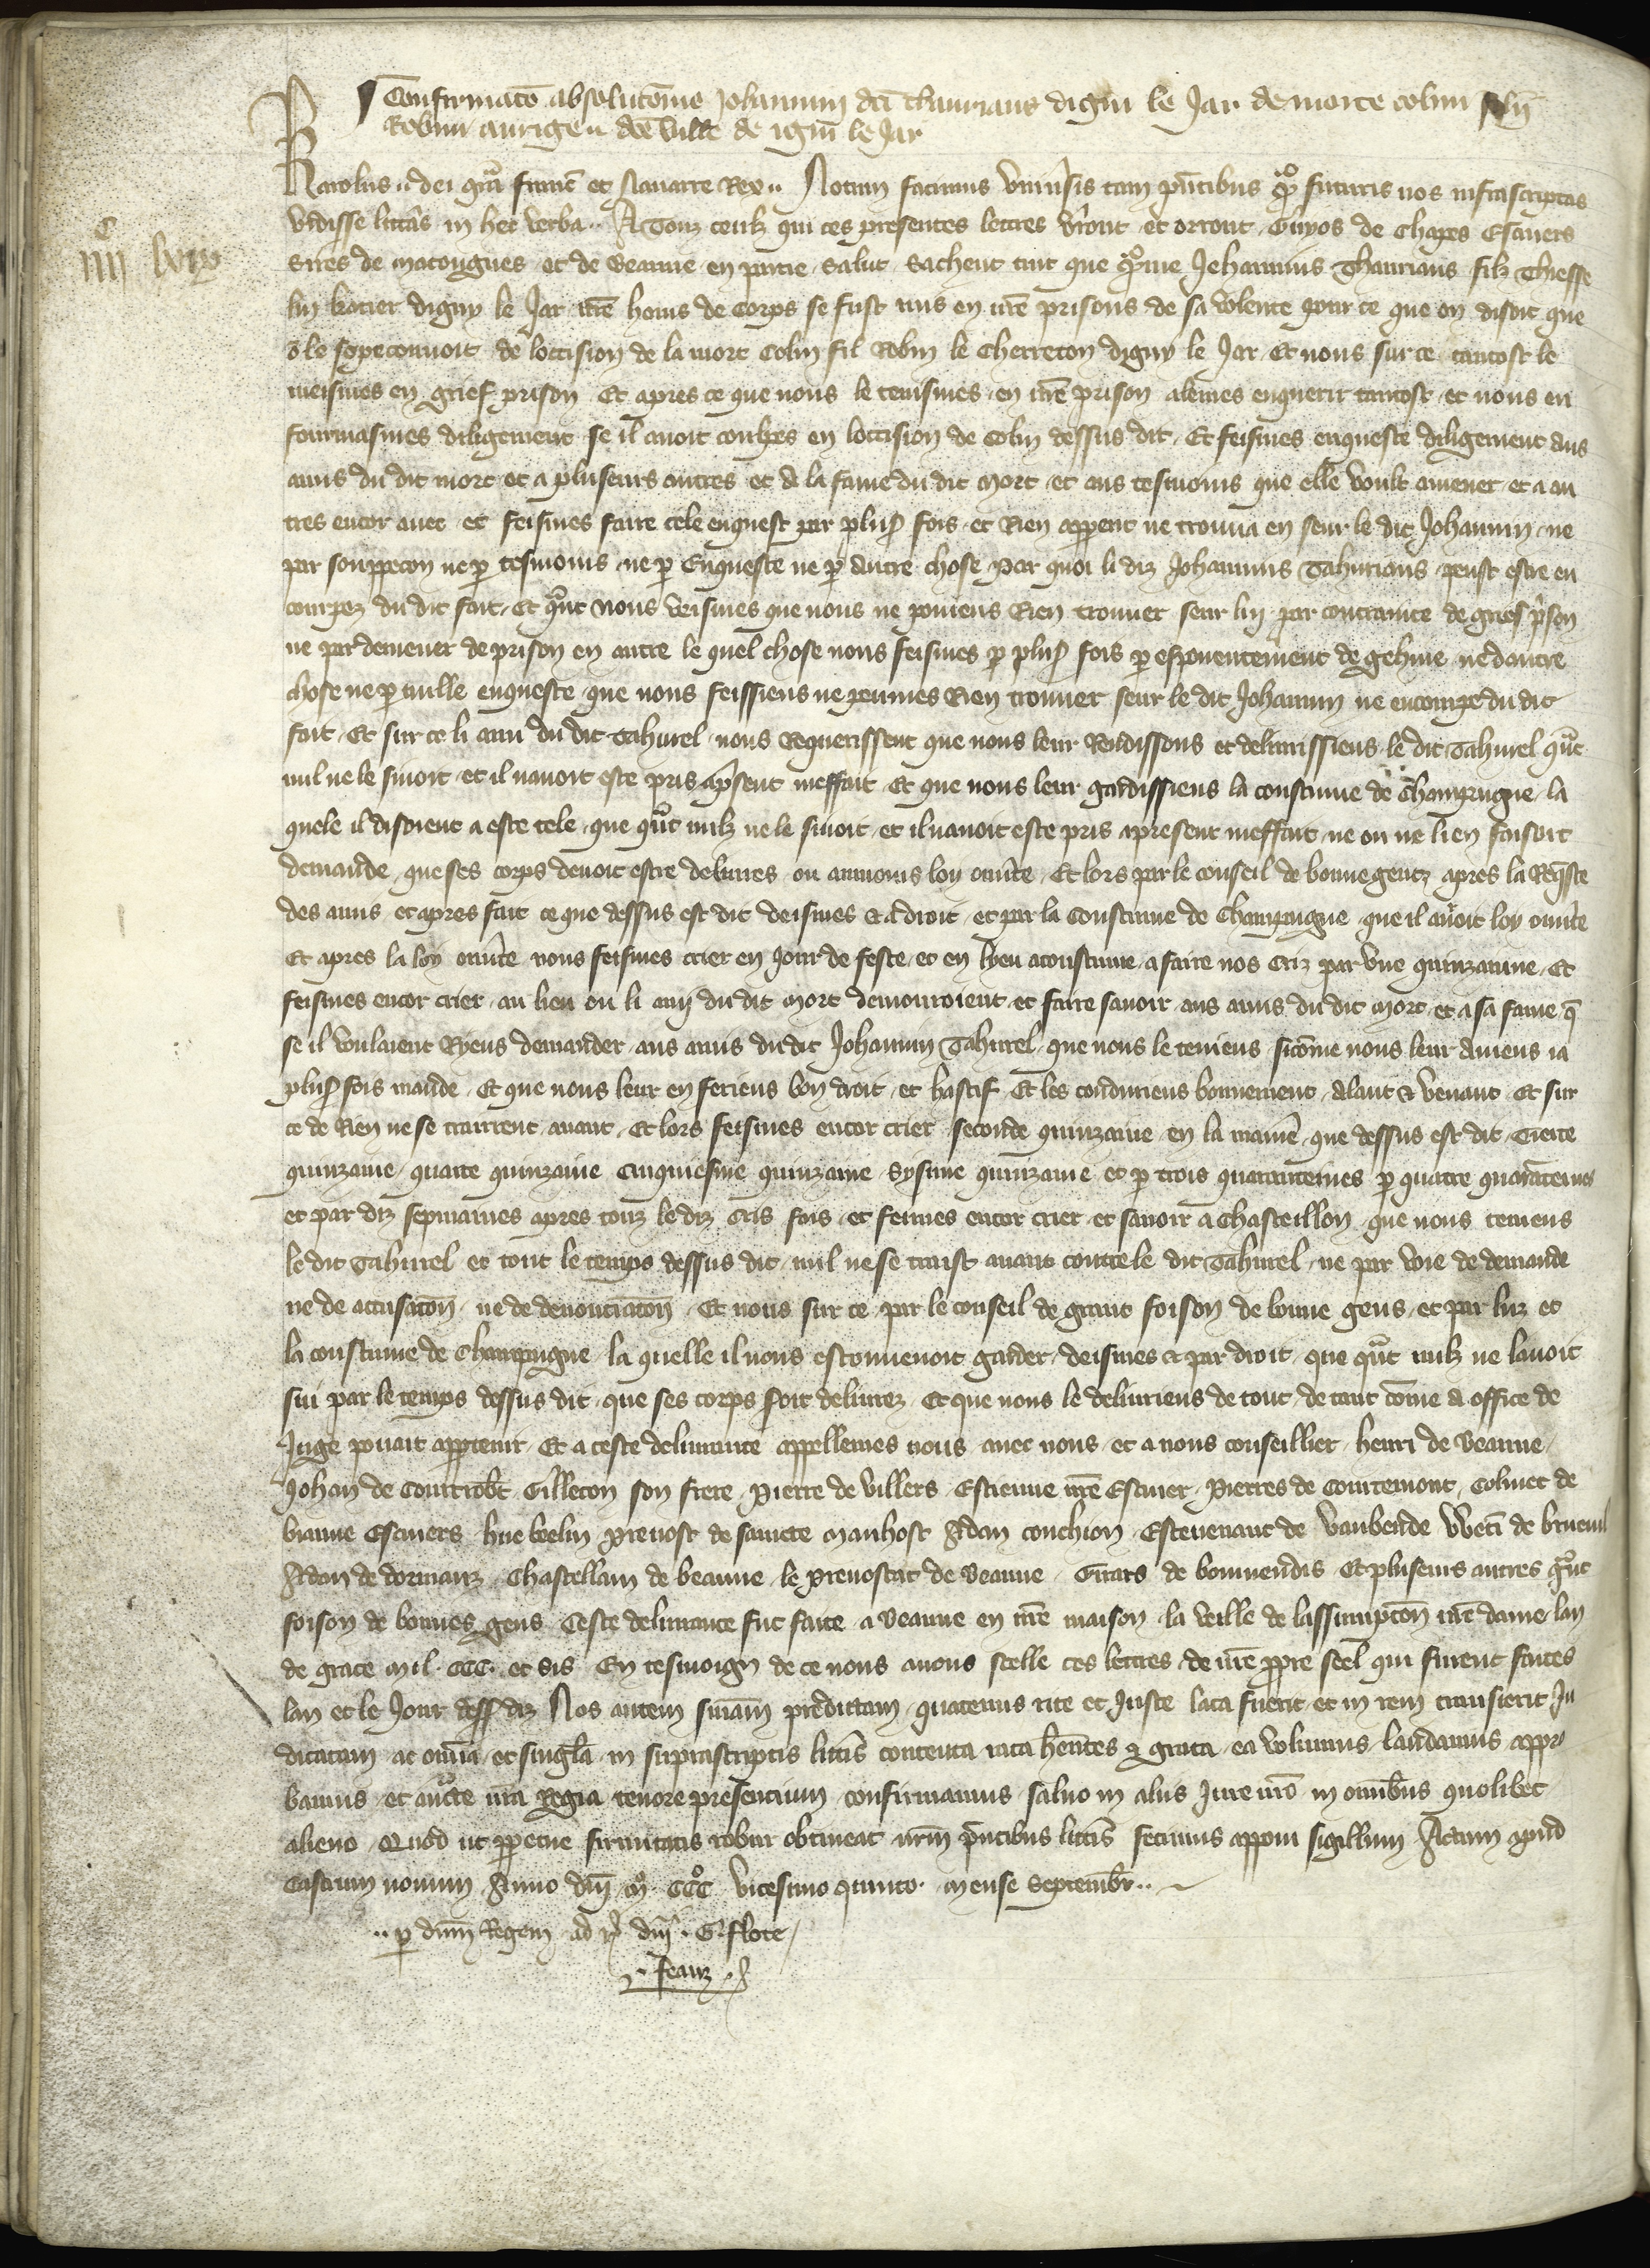 Confirmatō absolutōnis Johannini dči Thauriaut digni le Jar de morte colini filii
Robini aurige .. dc̄e ville de igni le Jar
iiii c lxix
Karolus .. dei gr̄a francͨ et Navarre Rex .. Notum facimus univ̄sis tam pn̄tibus q̄ futuris nos infrascriptas
vidisse litt̄as in hec verba .. A Touz ceulz qui ces presentes lettres v̄ront et orront Guyos de Chapes Escuiers
sires de Matougues et de Veanne en partie salut Sachent tuit que q̄me Jehannins Thauriaus filz Thiesse
lin bocier digny le Jar nr̄e homs de corps se fust mis en nr̄e prisons de sa volente pour ce que on disoit que
ō le sopeconnoit de loccision de la mort Colin fil Robin le Cherreton digny le Jar Et nous sur ce tantost le
meismes en grief prison Et apres ce que nous le tenismes en nr̄e prison alemes enquerir tantost et nous en
fourmasmes diligement se il avoit coulpes en loccision de Colin dessus dit Et feismes enqueste diligement aus
amis du dit mort et a pluseurs autres et a la fame du dit mort et aus tesmoins que elle voult amener et a au
tres encor avec et feismes faire cele enquest par plus̄ fois et Rien apperit ne trouva en seur le dit Johannin ne
par souppecon ne p̱ tesmoins ne p̱ Enqueste ne p̱ autre chose par quoi li diz Johannins Tahurians peust estre en
courpez du dit fait Et qᵃnt nous veismes que nous ne poniens Rien trouver seur luy par contrainte de grief p̄son
ne par demener de prison en autre le quel chose nous feismes p̱ plus̄ fois p̱ espouentement de gehine ne dautre
chose ne p̱ nulle enqueste que nous feissiens ne peumes Rien trouver seur le dit Johannin ne encoupe du dit
fait Et sur ce li ami du dit Tahurel nous Requerissent que nous leur Rendissons et delivrissiens le dit Tahurel qᵃnt
nul ne le suioit et il navoit este pris ap̄sent meffait Et que nous leur gardissiens la coustume de Champaigne la
quele il disoient a este tele que qᵃnt nulz ne le suioit et il navoit este pris apresent meffait ne on ne lien faisoit
demande que ses corps devoit estre delivres ou aumoins loy ouv̄te Et lors par le conseil de bonne gentz apres la Req̄ste
des amis et apres fait ce que dessus est dit deismes et a droit et par la Coustume de Champaigne que il avoit loy ouv̄te
Et apres la loy ouv̄te nous feismes crier en jour de feste et en lyeu acoustume a faire nos criz par une quinzainne Et
feismes encor crier au lieu ou li amy du dit mort demouroient et faire savoir aus amis du dit mort et a sa fame q̄
se il voulaient Ryens demander aus amis du dit Johannin Tahurel que nous le teniens sicōme nous leur aviens ia
plus̄ fois mande Et que nous leur en feriens bon droit et hastif Et les conduriens bonnement alant & venant Et sur
ce de Rien ne se trairent avant Et lors feismes encor crier seconde quinzaine en la manr̄e que dessus est dit tierce
quinzaine quarte quinzaine cinquiesme quinzaine sysime quinzaine et p̱ trois quarantaines p̱ quatre quarataines
et par diz sepmaines apres touz le diz cris fais et feimes encor crier et savoir a Chasteillon que nous teniens
le dit Tahurel et tout le temps dessus dit nul ne se traist avant contre le dit Tahurel ne par voie de demande
ne de accusatōn ne de denonciatōn Et nous sur ce par le conseil de grant foison de bonne gens et par luz et
la coustume de Champaigne la quelle il nous esconvenoit garder deismes & par droit que qᵃnt nulz ne lavoit
sui par le temps dessus dit que ses corps soit delivrez Et que nous le deliuriens de tout de tant cōme a office de
Juge povait appartenir Et a ceste delivrance appellemes nous avec nous et a nous conseillier henri de Veanne
Johan de Courtrob̄t Gilleton son frere Pierre de Villers Estienne nr̄e Escuier Pierres de Courtemont Colinet de
Vianne Escuiers hue beelin prevost de saincte Manhost Adan Couchion Estevenant de Vaubende
Adan de dormanz Chastellain de Veanne le prevostat de Veanne Girars de Et pluseurs autres qᵃnt
foison de bonnes gens Ceste delivrance fut faite a Veanne en nr̄e maison la veille de lassumptōn nr̄e dame lan
de grace mil CCC et sis En tesmoign de ce nous avons scelle ces lettres de nr̄e p̱pre seel qui furent faites
lan et le Jour dess̄ diz Nos autem sn̄iam predictam quatenus rite et juste lata fuerit et in rem transierit Ju
dicatam ac om̄ia et singl̄a in suprascriptis litt̄is contenta rata hēntes & grata ea volumus laudamus appro
bamus et auct̄e nr̄a Regia tenore presentium confirmamus salvo in aliis jure nr̄o in om̄ibus quolibet
alieno Quod ut p̱petue firmitatis robur obtineat nr̄m p̄ntibus litt̄is fecimus apponi sigillum Actum apud
Castrum novum Anno dn̄i M° CCC° vicesimo quinto mense Septembr̄ ..
.. p̱ dn̄m Regem ad r̄ dn̄i G. flote
.. Feauz